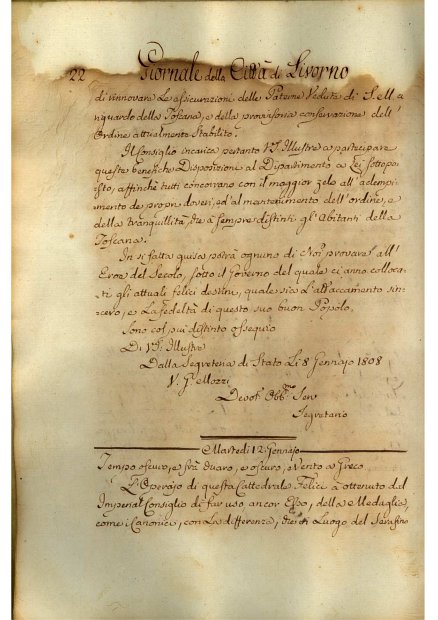 22 Giornale della Città di Livorno
di rinnovare Le assicurazioni delle Paterne Vedute di S.M. a
riguardo della Toscana, e della provisoria conservazione dell'
Ordine attualmente Stabilito.
Il Consiglio incarica pertanto VS. Illustre a participare
queste benefiche Disposizioni al Dipartimento a Lei sottopo=
sto, affinchè tutti concorrano con il maggior zelo all'adempi
mento de propri doveri, ed al mantenimento dell'ordine, e
della tranquillità, che à sempre distinti gl'Abitanti della
Toscana.
In si fatta guisa potrà ognuno di Noi provare all'
Eroe del Secolo, sotto il Governo del quale ci anno colloca=
ti gli attuali felici destini, quale sia L'attaccamento sin=
cero, e La fedeltà di questo suo buon Popolo.
Sono col più distinto ossequio
Di VS. Illustre
Dalla Segreteria di Stato Li 8 Gennajo 1808
V. G. Mozzi
Devot. Obb.mo Serv
Segretario
Martedì 12. Gennajo
Tempo oscuro, e frà chiaro, e oscuro, e Vento a Greco
L'Operajo di questa Cattedrale Felici à ottenuto dal
Imperial Consiglio di far uso ancor Esso, della Medaglia,
come i Canonici, con La differenza, che di Luogo del Serafino